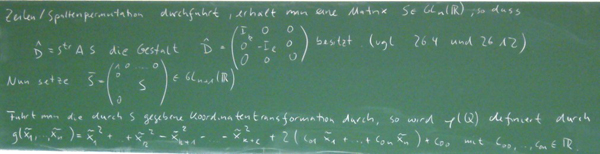 Zeilen/Spaltenpermutation durchführt, erhält man eine Matrix S ∈ GL_n(ℝ), so dass
D̂ = S^tr A S die Gestalt D̂ = ( I_k 0 0 ; 0 -I_l 0 ; 0 0 0 ) besitzt. (vgl 26.4 und 26.12)
Nun setze S̃ = ( 1 0 … 0 ; 0 S ; 0 ) ∈ GL_{n+1}(ℝ)
Führt man die durch S gegebene Koordinatentransformation durch, so wird φ(Q) definiert durch
g(x̃_1, …, x̃_n) = x̃_1² + … + x̃_k² - x̃_{k+1}² - … - x̃_{k+l}² + 2(c_{01} x̃_1 + … + c_{0n} x̃_n) + c_{00} mit c_{00}, …, c_{0n} ∈ ℝ.